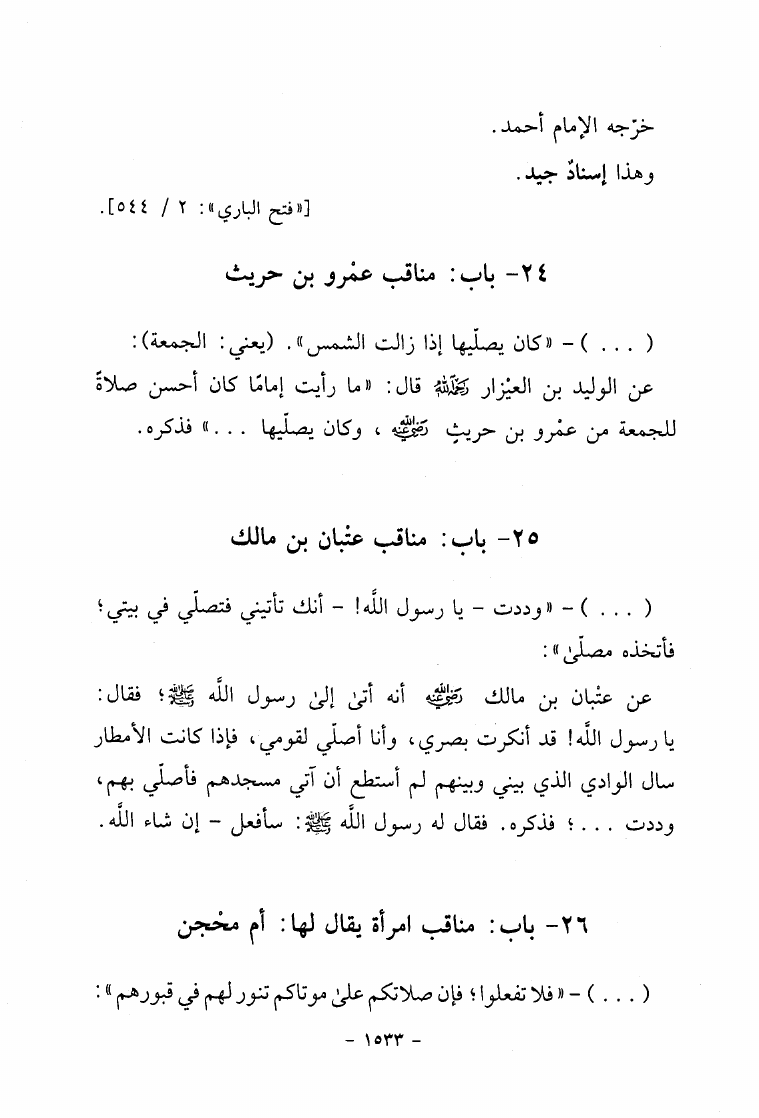 خرّجه الإمام أحمد.
وهذا إسنادٌ جيد.
[«فتح الباري»: ٢ / ٥٤٤].
٢٤- باب: مناقب عمْرو بن حريث
( . . . )- «كان يصلّيها إذا زالت الشمس». (يعني: الجمعة):
عن الوليد بن العيْزار رَحِمَهُ اللهُ قال: «ما رأيت إمامًا كان أحسن صلاةً
للجمعة من عمْرو بن حريثٍ رضي الله عنه ، وكان يصلّيها . . .» فذكره.
٢٥- باب: مناقب عتْبان بن مالك
( . . . )- «وددت - يا رسول اللَّه! - أنك تأتيني فتصلّي في بيتي؛
فأتخذه مصلّىٰ»:
عن عتْبان بن مالك رضي الله عنه أنه أتىٰ إلىٰ رسول اللَّه ﷺ؛ فقال:
يا رسول اللَّه! قد أنكرت بصري، وأنا أصلّي لقومي، فإذا كانت الأمطار
سال الوادي الذي بيني وبينهم لم أستطع أن آتي مسجدهم فأصلّي بهم،
وددت . . .؛ فذكره. فقال له رسول اللَّه ﷺ: سأفعل - إن شاء اللَّه.
٢٦- باب: مناقب امرأة يقال لها: أم محْجن
( . . . )- «فلا تفعلوا؛ فإن صلاتكم علىٰ موتاكم تنور لهم في قبورهم»:
- ١٥٣٣ -